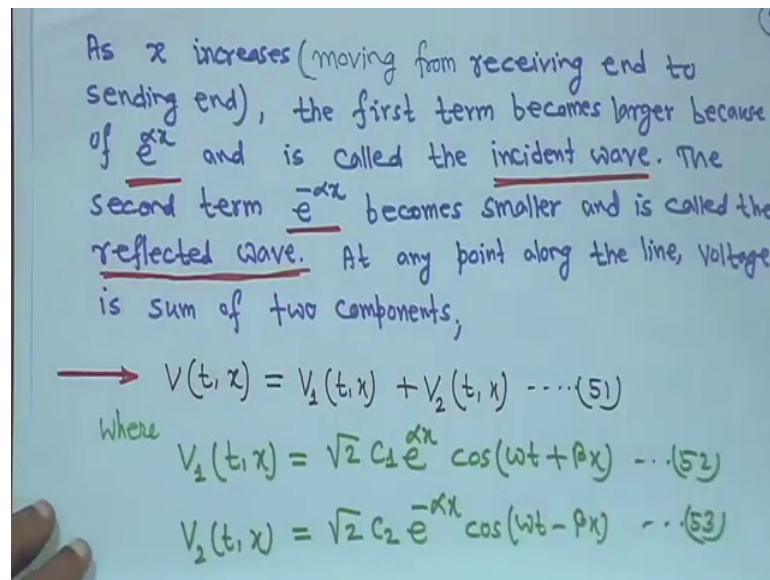 As x increases (moving from receiving end to
sending end), the first term becomes larger because
of e^αx and is called the incident wave. The
second term e^-αx becomes smaller and is called the
reflected wave. At any point along the line, voltage
is sum of two components,
→ V(t,x) = V₁(t,x) + V₂(t,x) ----(51)
where
V₁(t,x) = √2 C₁ e^αx cos(ωt + βx) ---(52)
V₂(t,x) = √2 C₂ e^-αx cos(ωt - βx) ---(53)